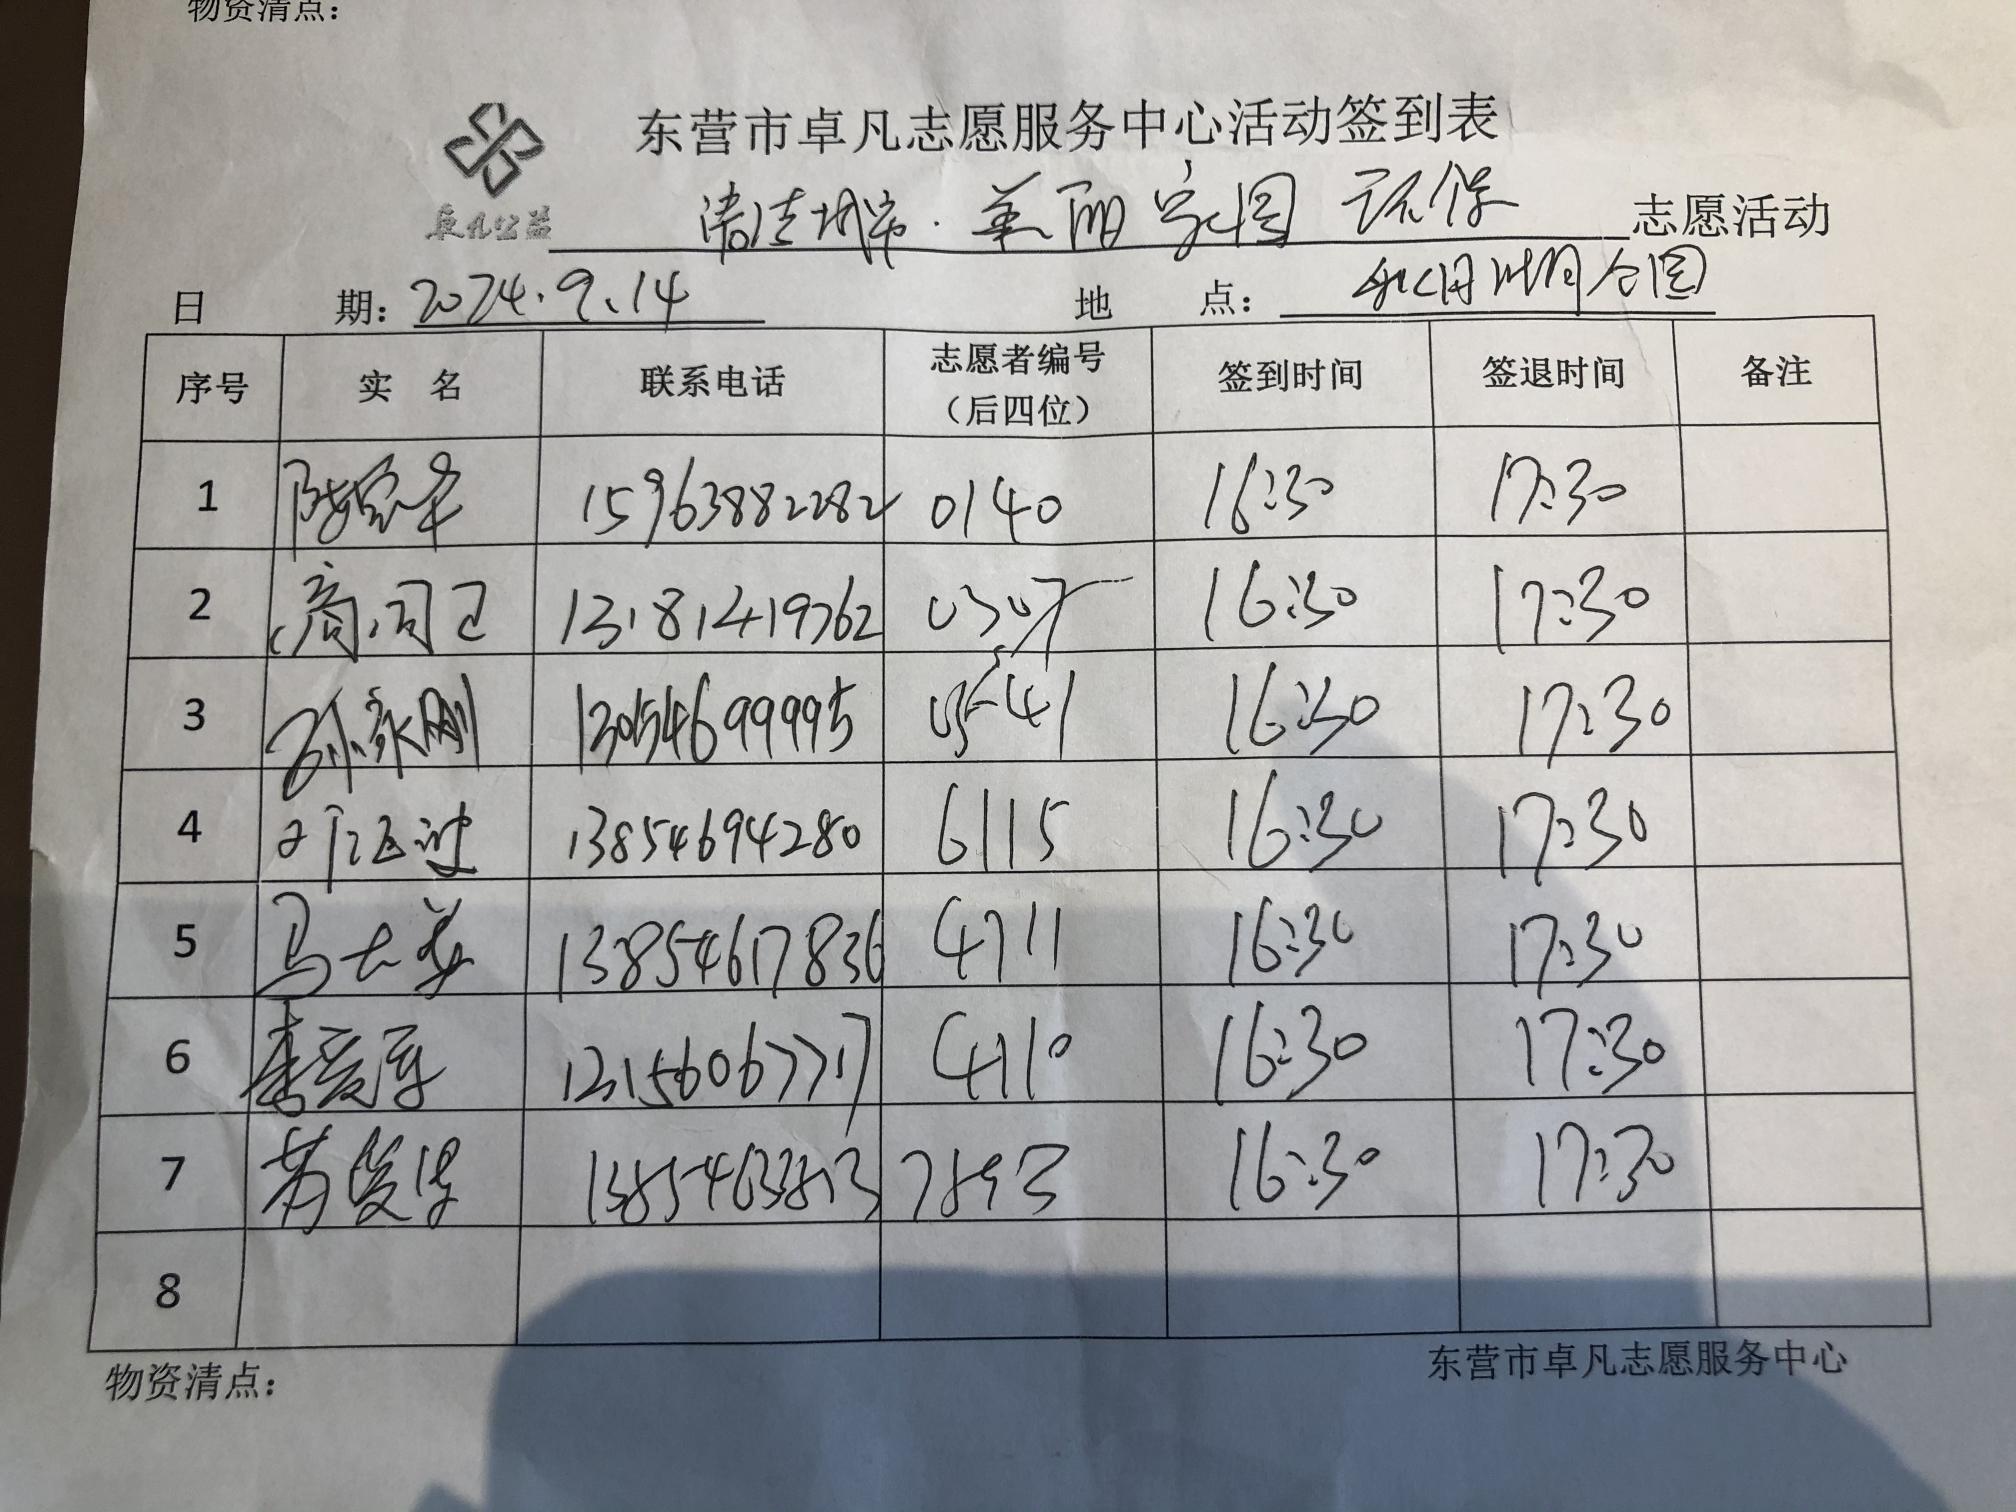 物资清点：
东营市卓凡志愿服务中心活动签到表
卓凡公益
清洁城市·美丽家园 环保 志愿活动
日 期：2024.9.14 地 点： 公园
序号 实 名 联系电话 志愿者编号（后四位） 签到时间 签退时间 备注
1 15963882282 0140 16:30 17:30
2 13181419762 0307 16:30 17:30
3 孙永刚 13054699995 0541 16:30 17:30
4 13854694280 6115 16:30 17:30
5 13854617836 4711 16:30 17:30
6 16:30 17:30
7 13854633813 7893 16:30 17:30
8
物资清点： 东营市卓凡志愿服务中心